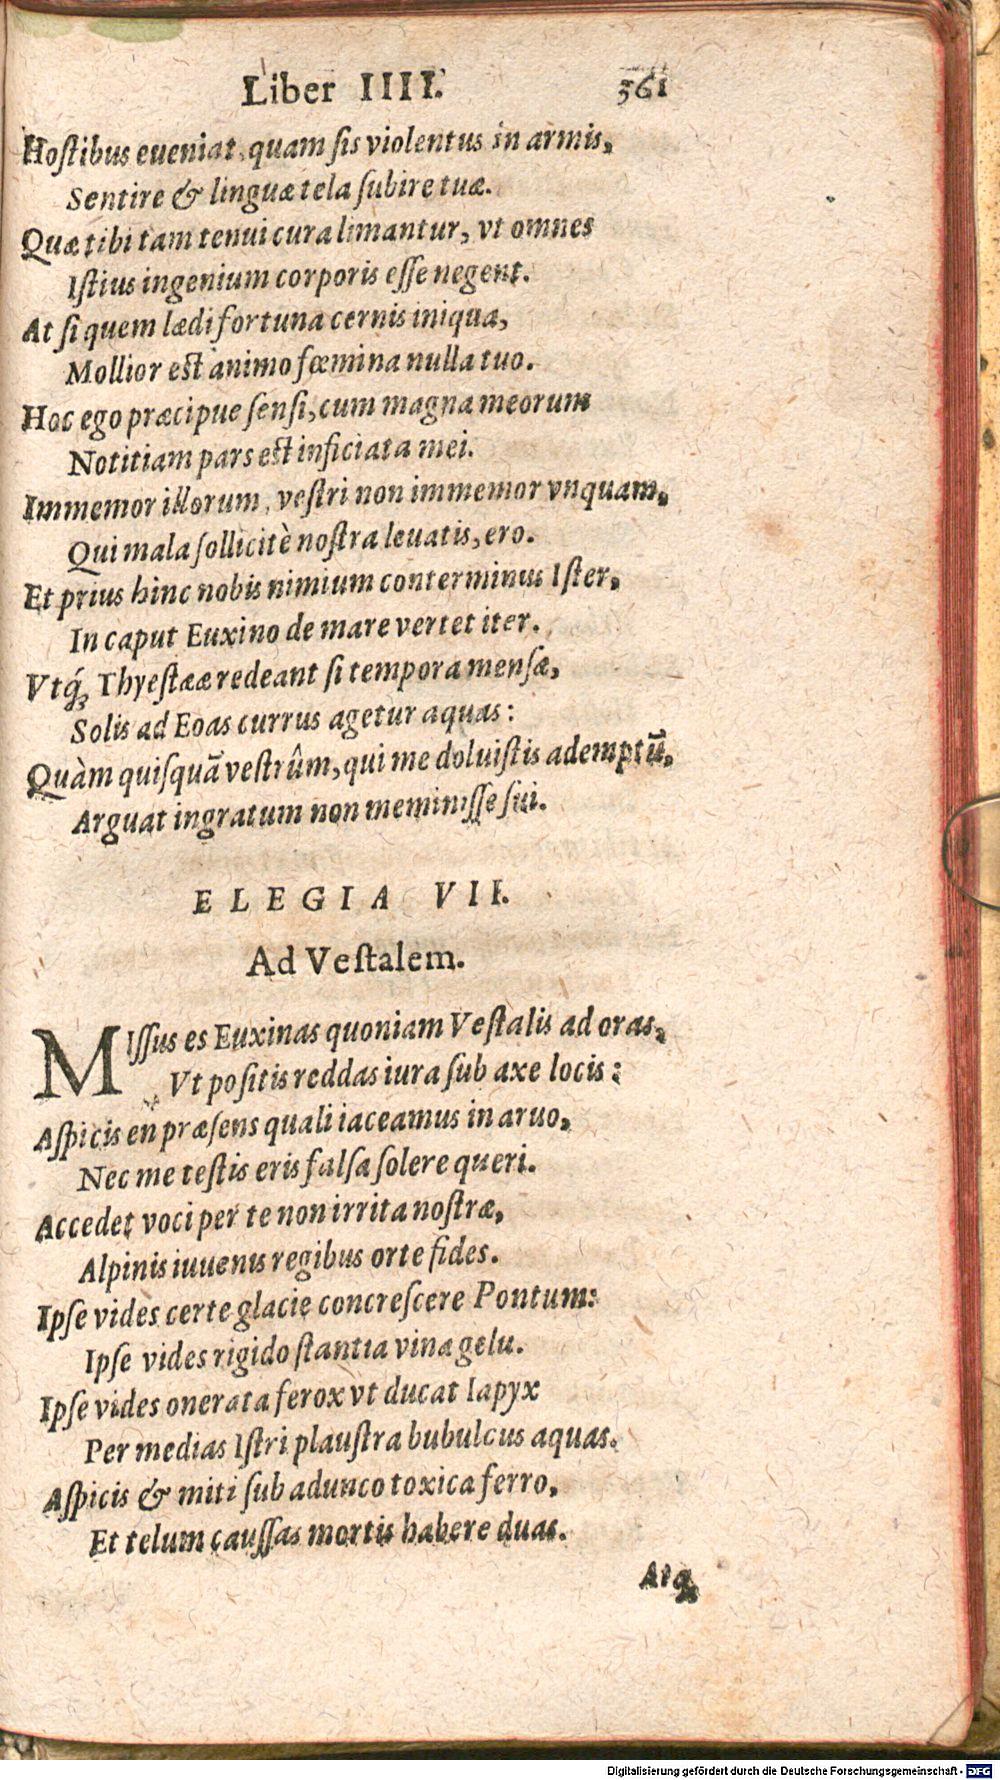 Liber IIII. 361
Hoſtibus eueniat, quam ſis violentus in armis,
Sentire & linguæ tela ſubire tuæ.
Quæ tibi tam tenui cura limantur, vt omnes
Iſtius ingenium corporis eſſe negent.
At ſi quem lædi fortuna cernis iniqua,
Mollior est animo fœmina nulla tuo.
Hoc ego præcipue ſenſi, cum magna meorum
Notitiam pars est inficiata mei.
Immemor illorum, veſtri non immemor vnquam,
Qui mala ſollicitè noſtra leuatis, ero.
Et prius hinc nobis nimium conterminus Iſter,
In caput Euxino de mare vertet iter.
Vtq́; Thyeſtææ redeant ſi tempora menſæ,
Solis ad Eoas currus agetur aquas:
Quàm quiſquā veſtrûm, qui me doluiſtis ademptū,
Arguat ingratum non meminiſſe ſui.
ELEGIA VII.
Ad Veſtalem.
MIſſus es Euxinas quoniam Veſtalis ad oras,
Vt poſitis reddas iura ſub axe locis:
Aſpicis en præſens quali iaceamus in aruo,
Nec me teſtis eris falſa ſolere queri.
Accedet voci per te non irrita noſtræ,
Alpinis iuuenis regibus orte fides.
Ipſe vides certe glacie concreſcere Pontum:
Ipſe vides rigido ſtantia vina gelu.
Ipſe vides onerata ferox vt ducat Iapyx
Per medias Iſtri plauſtra bubulcus aquas.
Aſpicis & miti ſub adunco toxica ferro,
Et telum cauſſas mortis habere duas.
Atq;
Digitalisierung gefördert durch die Deutsche Forschungsgemeinschaft - DFG